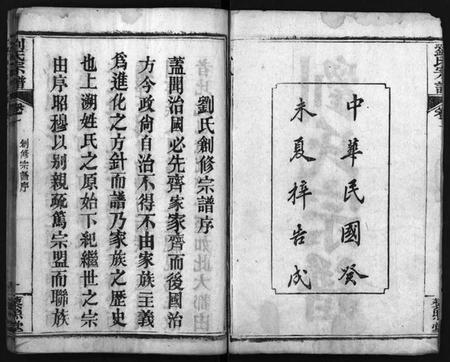 劉氏宗譜
卷一
中華民國癸
未夏梓告成
劉氏創修宗譜序
蓋聞治國必先齊家家齊而後國治
方今政尙自治不得不由家族主義
爲進化之方針而譜乃家族之歷史
也上溯姓氏之原始下紀繼世之宗
由序昭穆以別親疏篤宗盟而聯族
劉氏宗譜
卷一
創修宗譜序
一